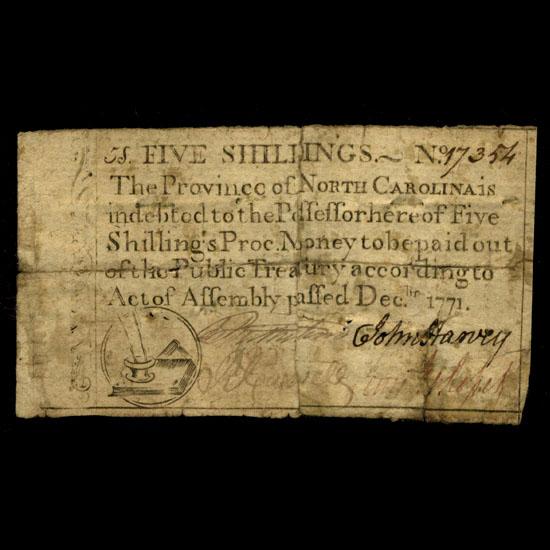 5s. FIVE SHILLINGS.~ No. 17354
The Province of NORTH CAROLINA is
indebted to the Possessor hereof Five
Shillings Proc. Money to be paid out
of the Public Treasury according to
Act of Assembly passed Decbr. 1771.
John Harvey